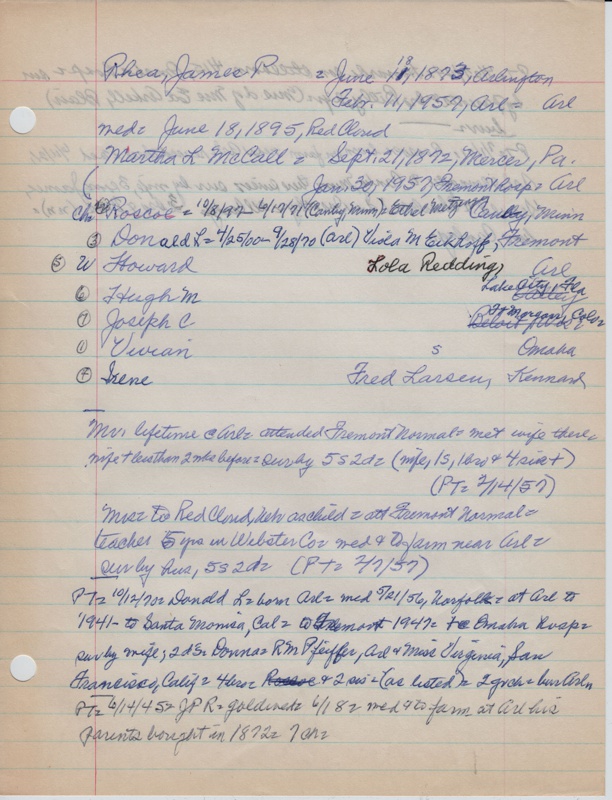 Rhea, James P = June 18, 1873, Arlington
Febr. 11, 1957, Arl = Arl
med = June 18, 1895, Red Cloud
Martha L McCall = Sept. 21, 1872, Mercer, Pa.
( Jan. 30, 1957, Fremont hosp = Arl
ch: Roscoe = 10/8/97 - 6/17/71 (Canby, Minn) = Ethel Canby, Minn
③ Donald L = 4/25/00 - 9/28/70 (Arl) Viola M Eckhoff, Fremont
⑤ W Howard Lola Redding, Arl
⑥ Hugh M Lake City, Fla
⑦ Joseph C Ft Morgan, Colo
① Vivian s Omaha
④ Irene Fred Larsen, Kennard
Mr: lifetime c Arl = attended Fremont Normal = met wife there =
wife + less than 2 wks before = sur by 5 s 2 d = (wife, 1s, 1 bro & 4 sis +)
(PT = 2/14/57)
Mrs = to Red Cloud, Nebr as child = att Fremont Normal =
teacher 5 yrs in Webster Co = med & to farm near Arl =
sur by hus, 5 s 2 d = (PT = 2/7/57)
PT = 10/12/70 = Donald L = born Arl = med 5/21/56, Norfolk = at Arl to
1941 - to Santa Monica, Cal = to Fremont 1947 = + c Omaha hosp =
sur by wife; 2 ds = Donna = R M Pfeiffer, Arl & Miss Virginia, San
Francisco, Calif = 4 bro = Roscoe & 2 sis = (as listed) = 2 grch = bur Arln
PT = 6/14/45 = J P R = gold wed = 6/18 = med & to farm at Arl his
parents bought in 1872 = 7 ch =